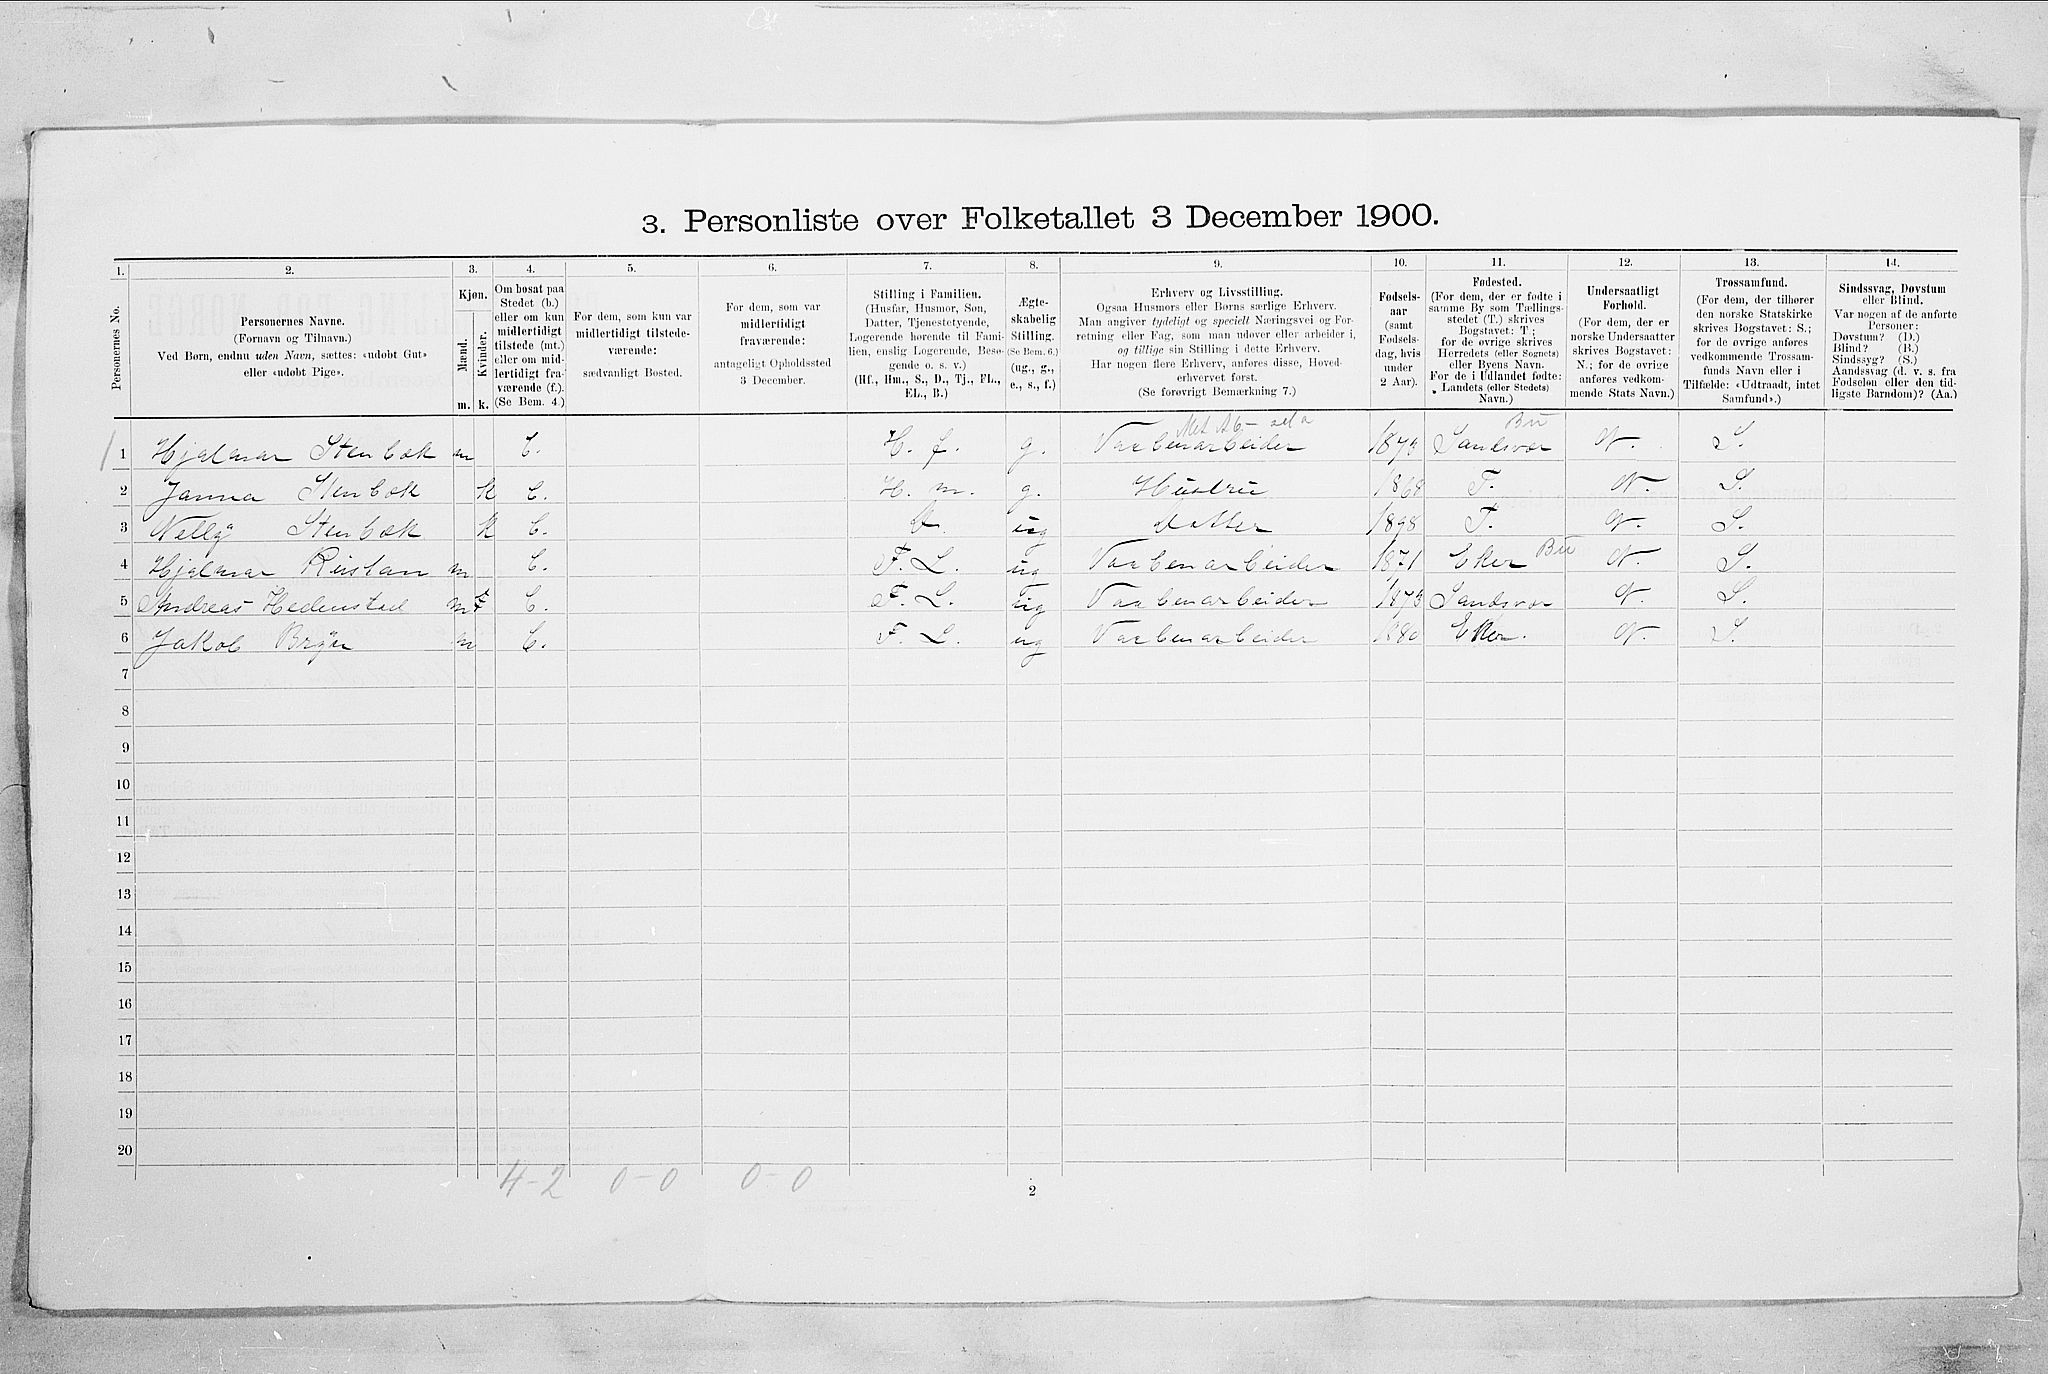 3. Personliste over Folketallet 3 December 1900.
1. 2. 3. 4. 5. 6. 7. 8. 9. 10. 11. 12. 13. 14.
Personernes No.
Personernes Navne.
(Fornavn og Tilnavn.)
Ved Børn, endnu uden Navn, sættes: «udøbt Gut»
eller «udøbt Pige».
Kjøn.
Mænd.
Kvinder.
m. k.
Om bosat paa
Stedet (b.)
eller om kun
midlertidigt
tilstede (mt.)
eller om mid-
lertidigt fra-
værende (f.).
(Se Bem. 4.)
For dem, som kun var
midlertidigt tilstede-
værende:
sædvanligt Bosted.
For dem, som var
midlertidigt
fraværende:
antageligt Opholdssted
3 December.
Stilling i Familien.
(Husfar, Husmor, Søn,
Datter, Tjenestetyende,
Logerende hørende til Fami-
lien, enslig Logerende, Besø-
gende o. s. v.)
(Hf., Hm., S., D., Tj., FL.,
EL., B.)
Ægte-
skabelig
Stilling.
(Se Bem. 6.)
(ug., g.,
e., s., f.)
Erhverv og Livsstilling.
Ogsaa Husmors eller Børns særlige Erhverv.
Man angiver tydeligt og specielt Næringsvei og For-
retning eller Fag, som man udøver eller arbeider i,
og tillige sin Stilling i dette Erhverv.
Har nogen flere Erhverv, anføres disse, Hoved-
erhvervet først.
(Se forøvrigt Bemærkning 7.)
Fødsels-
aar
(samt
Fødsels-
dag, hvis
under
2 Aar).
Fødested.
(For dem, der er fødte i
samme By som Tællings-
stedet (T.) skrives
Bogstavet: T.;
for de øvrige skrives
Herredets (eller Sognets)
eller Byens Navn.
For de i Udlandet fødte:
Landets (eller Stedets)
Navn.)
Undersaatligt
Forhold.
(For dem, der er
norske Undersaatter
skrives Bogstavet:
N.; for de øvrige
anføres vedkom-
mende Stats Navn.)
Trossamfund.
(For dem, der tilhører
den norske Statskirke
skrives Bogstavet: S.;
for de øvrige anføres
vedkommende Trossam-
funds Navn eller i
Tilfælde: «Udtraadt, intet
Samfund».)
Sindssvag, Døvstum
eller Blind.
Var nogen af de anførte
Personer:
Døvstum? (D.)
Blind? (B.)
Sindssyg? (S.)
Aandssvag (d. v. s. fra
Fødselen eller den tid-
ligste Barndom)? (Aa.)
1 Hjalmar Stenbæk m b. H. f. g. Vaabenarbeider 1873 Sandsvær N. S.
2 Janna Stenbæk k b. H. m. g. Hustru 1868 T. N. S.
3 Nelly Stenbæk k b. D. ug Datter 1898 T. N. S.
4 Hjalmar Rustan m b. F. L. ug Vaabenarbeider 1871 Eker Bu N. S.
5 Andreas Hedenstad m b. F. L. ug Vaabenarbeider 1873 Sandsvær N. S.
6 Jakob m b. F. L. ug Vaabenarbeider 1880 Eker. N. S.
7
8
9
10
11
12
13
14
15
16
17
18
19
20
4-2 0-0 0-0
2